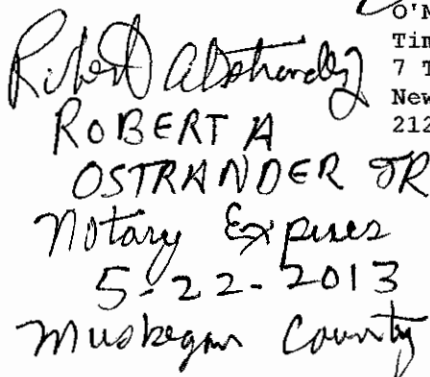 O'N
Tim
7 T
New
212
Robert A Ostrander Jr
ROBERT A
OSTRANDER JR
Notary Expires
5-22-2013
Muskegon County